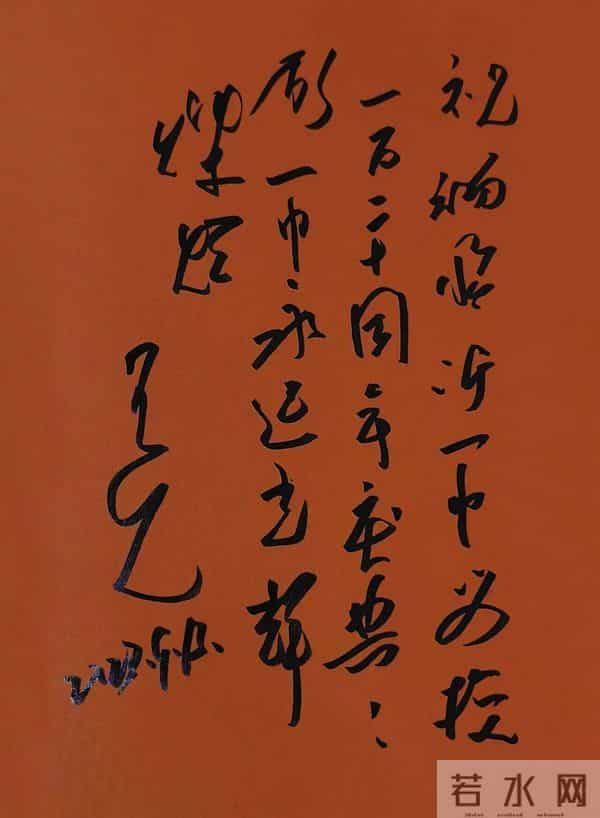 祝临沂一中母校
一百二十周年庆典
愿一中永远光辉
灿烂
若水网